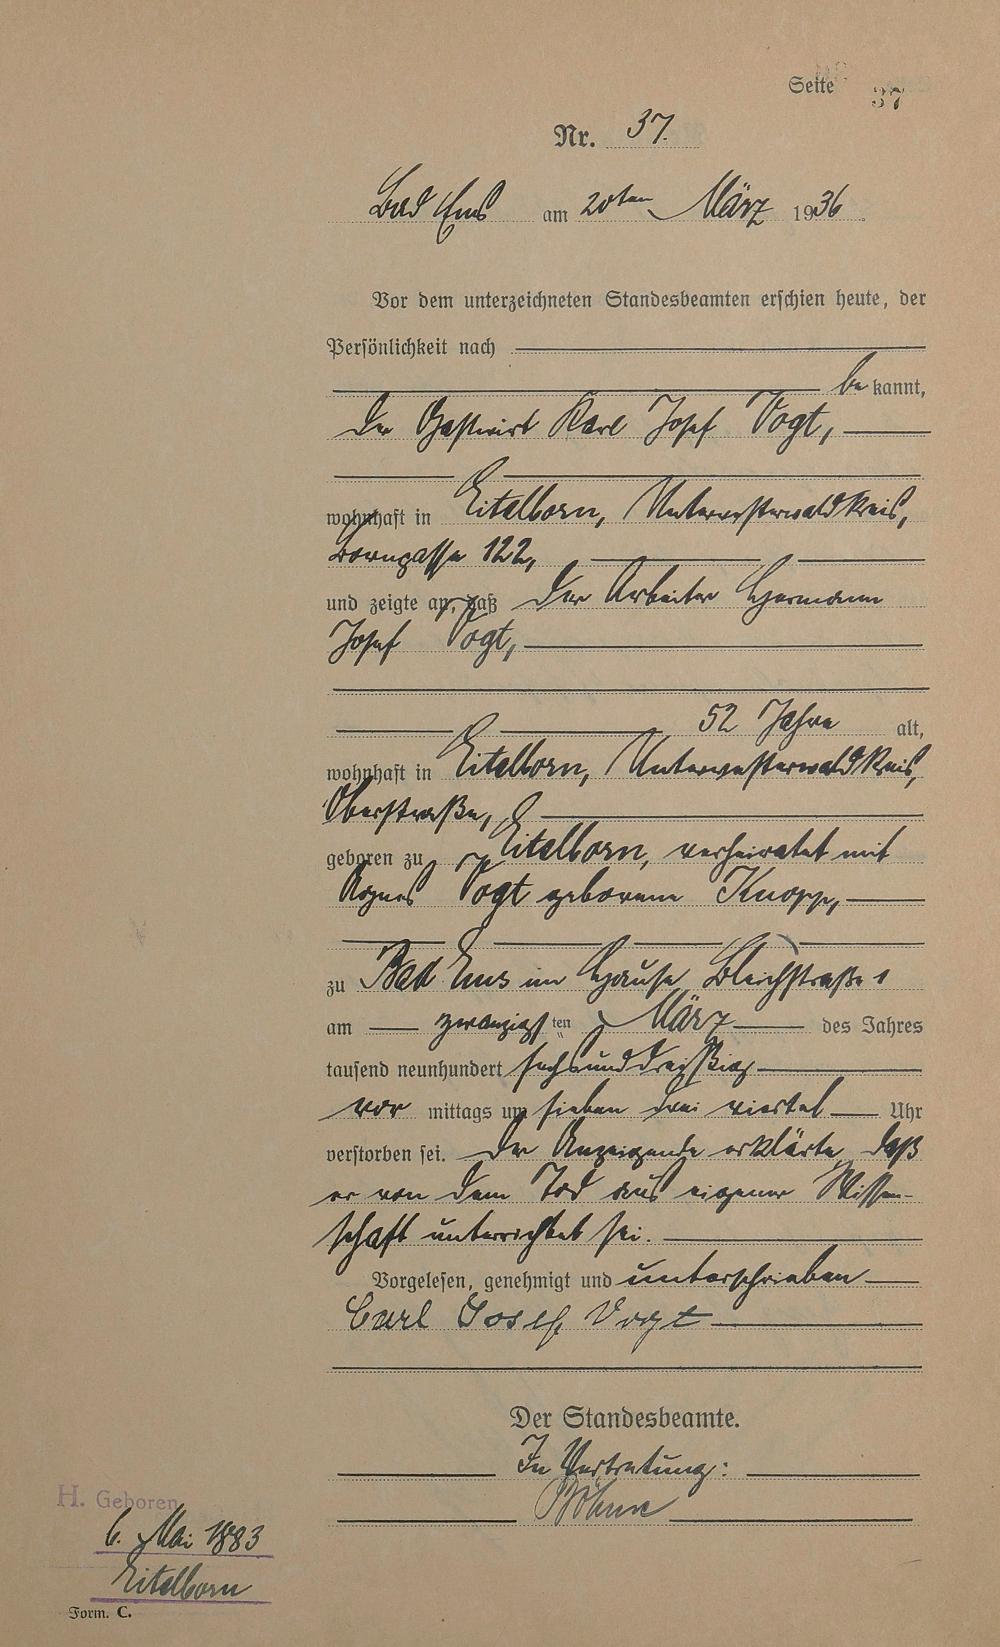 Seite 37
Nr. 37.
Bad Ems am 20ten März 1936.
Vor dem unterzeichneten Standesbeamten erschien heute, der
Persönlichkeit nach
be kannt,
der Gastwirt Karl Josef Vogt,
wohnhaft in Eitelborn, Unterwesterwaldkreis,
Borngasse 122,
und zeigte an, daß der Arbeiter Hermann
Josef Vogt,
52 Jahre alt,
wohnhaft in Eitelborn, Unterwesterwaldkreis,
Oberstraße,
geboren zu Eitelborn, verheiratet mit
Agnes Vogt geborene Knopp,
zu Bad Ems im Hause Bleichstraße 1
am zwanzigsten März des Jahres
tausend neunhundert sechsunddreißig
vor mittags um sieben drei viertel Uhr
verstorben sei. Der Anzeigende erklärte, daß
er von dem Tod aus eigener Wissen-
schaft unterrichtet sei.
Vorgelesen, genehmigt und unterschrieben
Carl Josef Vogt
Der Standesbeamte.
In Vertretung:
H. Geboren
6. Mai 1883
Eitelborn
Form. C.